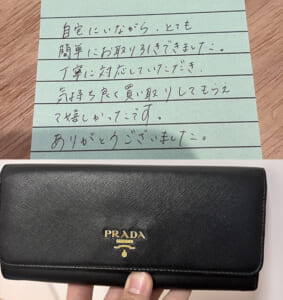 自宅にいながら、とても
簡単にお取り引きできました。
丁寧に対応していただき、
気持ち良く買い取りしてもらえ
て嬉しかったです。
ありがとうございました。
PRADA